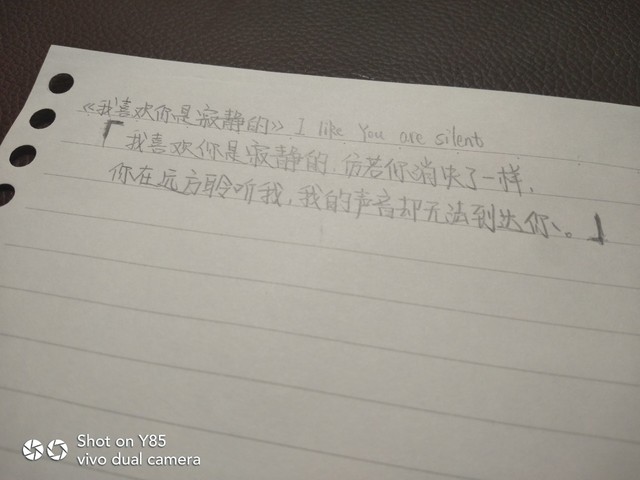 《我喜欢你是寂静的》 I like You are silent
「我喜欢你是寂静的,仿若你消失了一样,
你在远方聆听我,我的声音却无法到达你。」
Shot on Y85
vivo dual camera